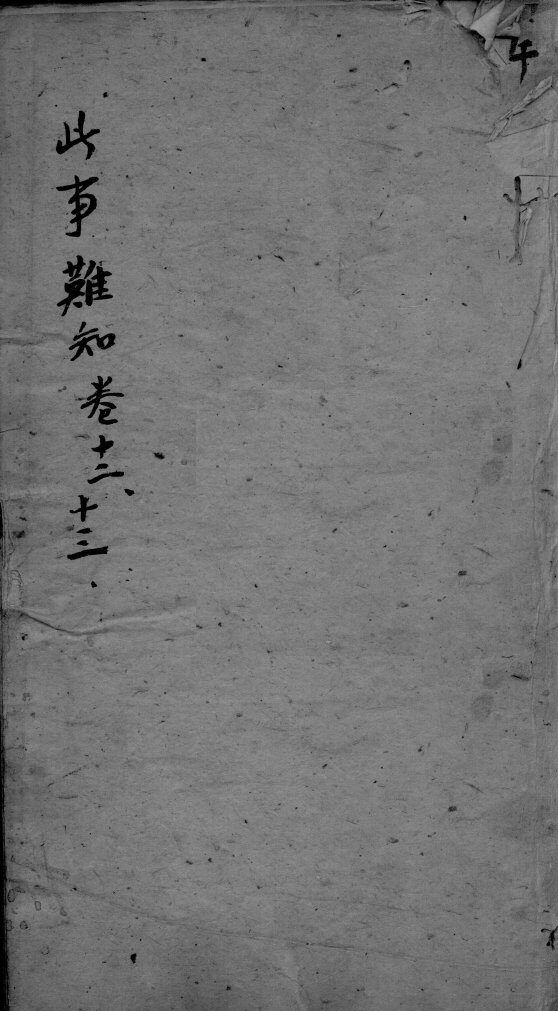 午
此事難知卷十二、十三、